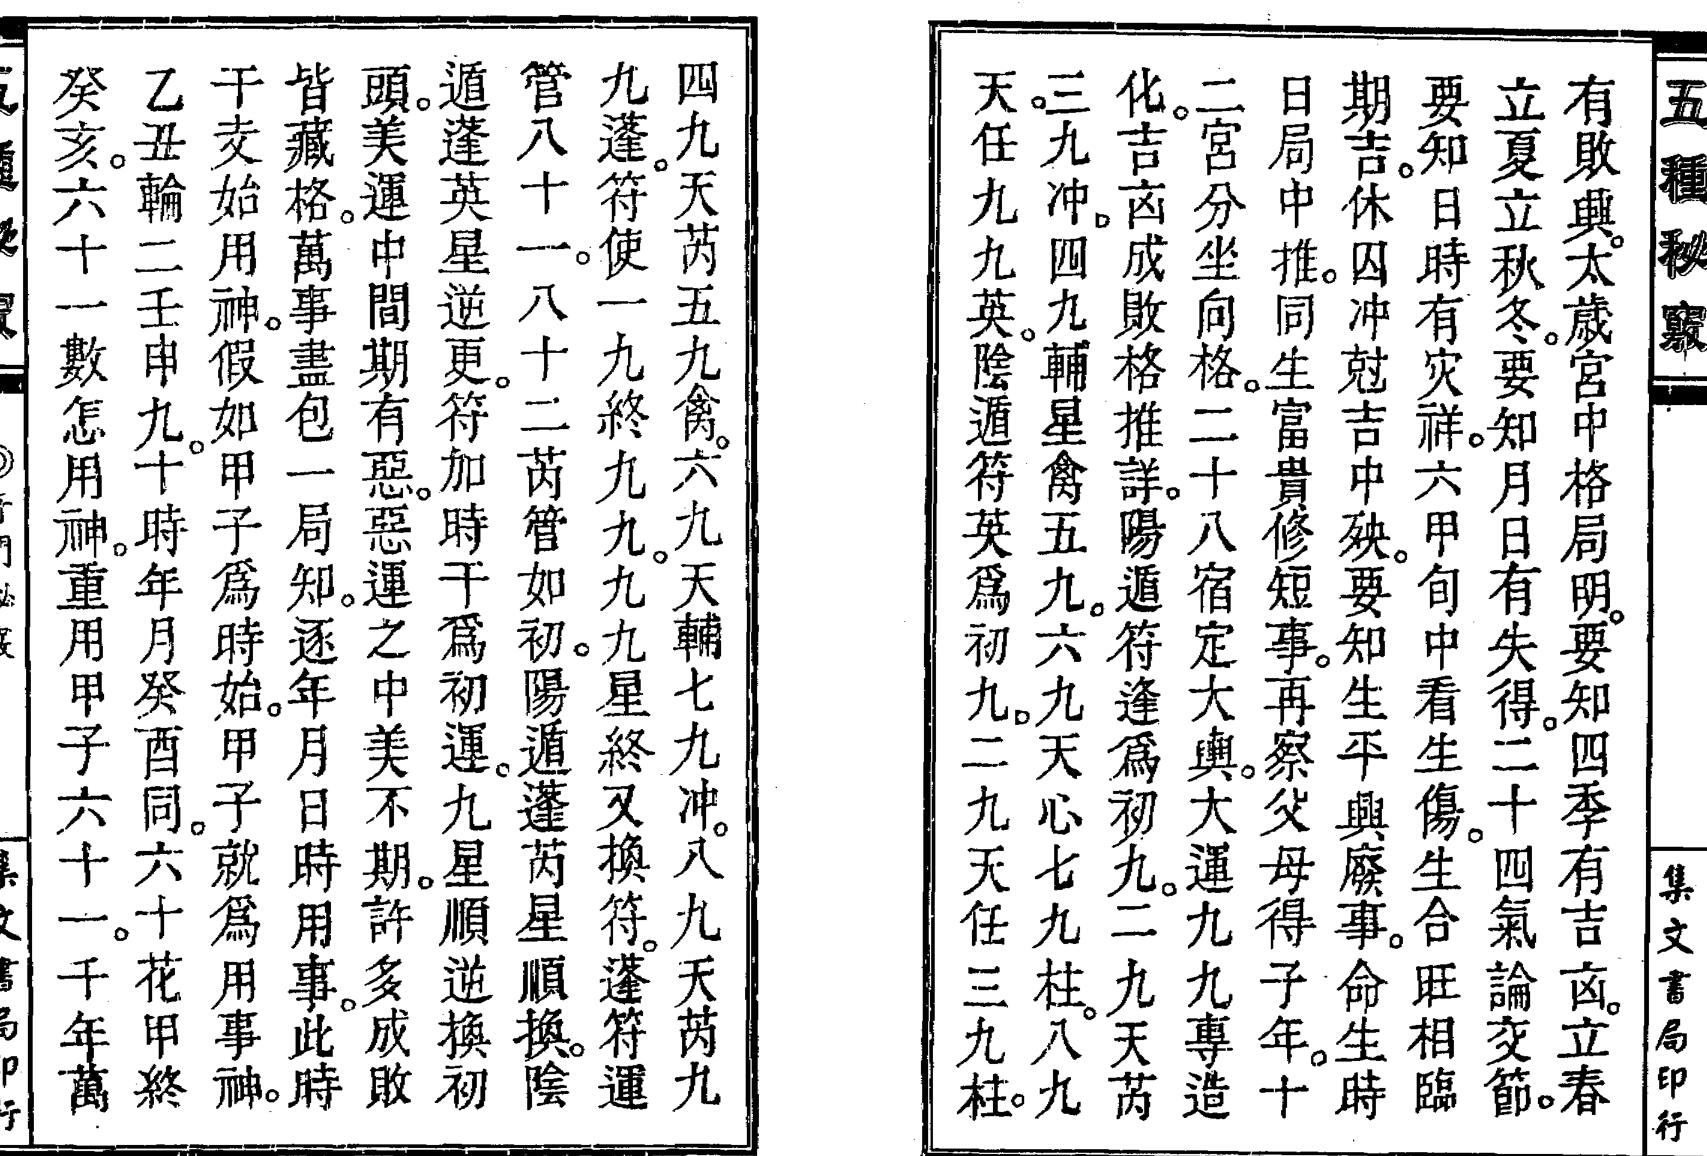 五種秘竅
集文書局印行
有敗興。太歲宮中格局明。要知四季有吉凶。立春
立夏立秋冬。要知月日有失得。二十四氣論交節。
要知日時有灾祥。六甲旬中看生傷。生合旺相臨
期吉。休囚冲尅吉中殃。要知生平興廢事。命生時
日局中推。同生富貴修短事。再察父母得子年。十
二宮分坐向格。二十八宿定大輿。大運九九專造
化。吉凶成敗格推詳。陽遁符逢爲初九。二九天芮
三九冲。四九輔星禽五九。六九天心七九柱。八九
天任九九英。陰遁符英爲初九。二九天任三九柱。
四九天芮五九禽。六九天輔七九冲。八九天芮九
九蓬。符使一九終九九。九九星終又換符。蓬符運
管八十一。八十二芮管如初。陽遁蓬芮星順換。陰
遁蓬英星逆更。符加時干爲初運。九星順逆換初
頭。美運中間期有惡。惡運之中美不期。許多成敗
皆藏格。萬事盡包一局知。逐年月日時用事。此時
干支始用神。假如甲子爲時始。甲子就爲用事神。
乙丑輪二壬申九。十時年月癸酉同。六十花甲終
癸亥。六十一數怎用神。重用甲子六十一。千年萬
集文書局印行